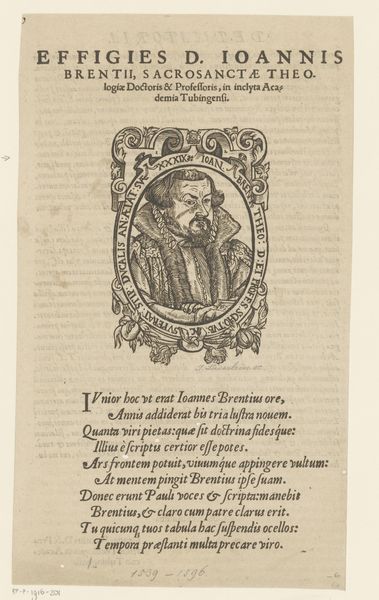 EFFIGIES D. IOANNIS
BRENTII, SACROSANCTÆ THEO-
logiæ Doctoris & Professoris, in inclyta Aca-
demia Tubingensi.
XXXIX IOAN. BRENT. THEO: D. ET PROFES
IVnior hoc vt erat Ioannes Brentius ore,
Annis addiderat bis tria lustra nouem.
Quanta viri pietas: quæ sit doctrina fidesq́ue:
Illius è scriptis certior esse potes.
Ars frontem potuit, viuumque appingere vultum:
At mentem pingit Brentius ipse suam.
Donec erunt Pauli voces & scripta: manebit
Brentius, & claro cum patre clarus erit.
Tu quicunq; tuos tabula hac suspendis ocellos:
Tempora præstanti multa precare viro.
1539 - 1596
RP-P-1916-201